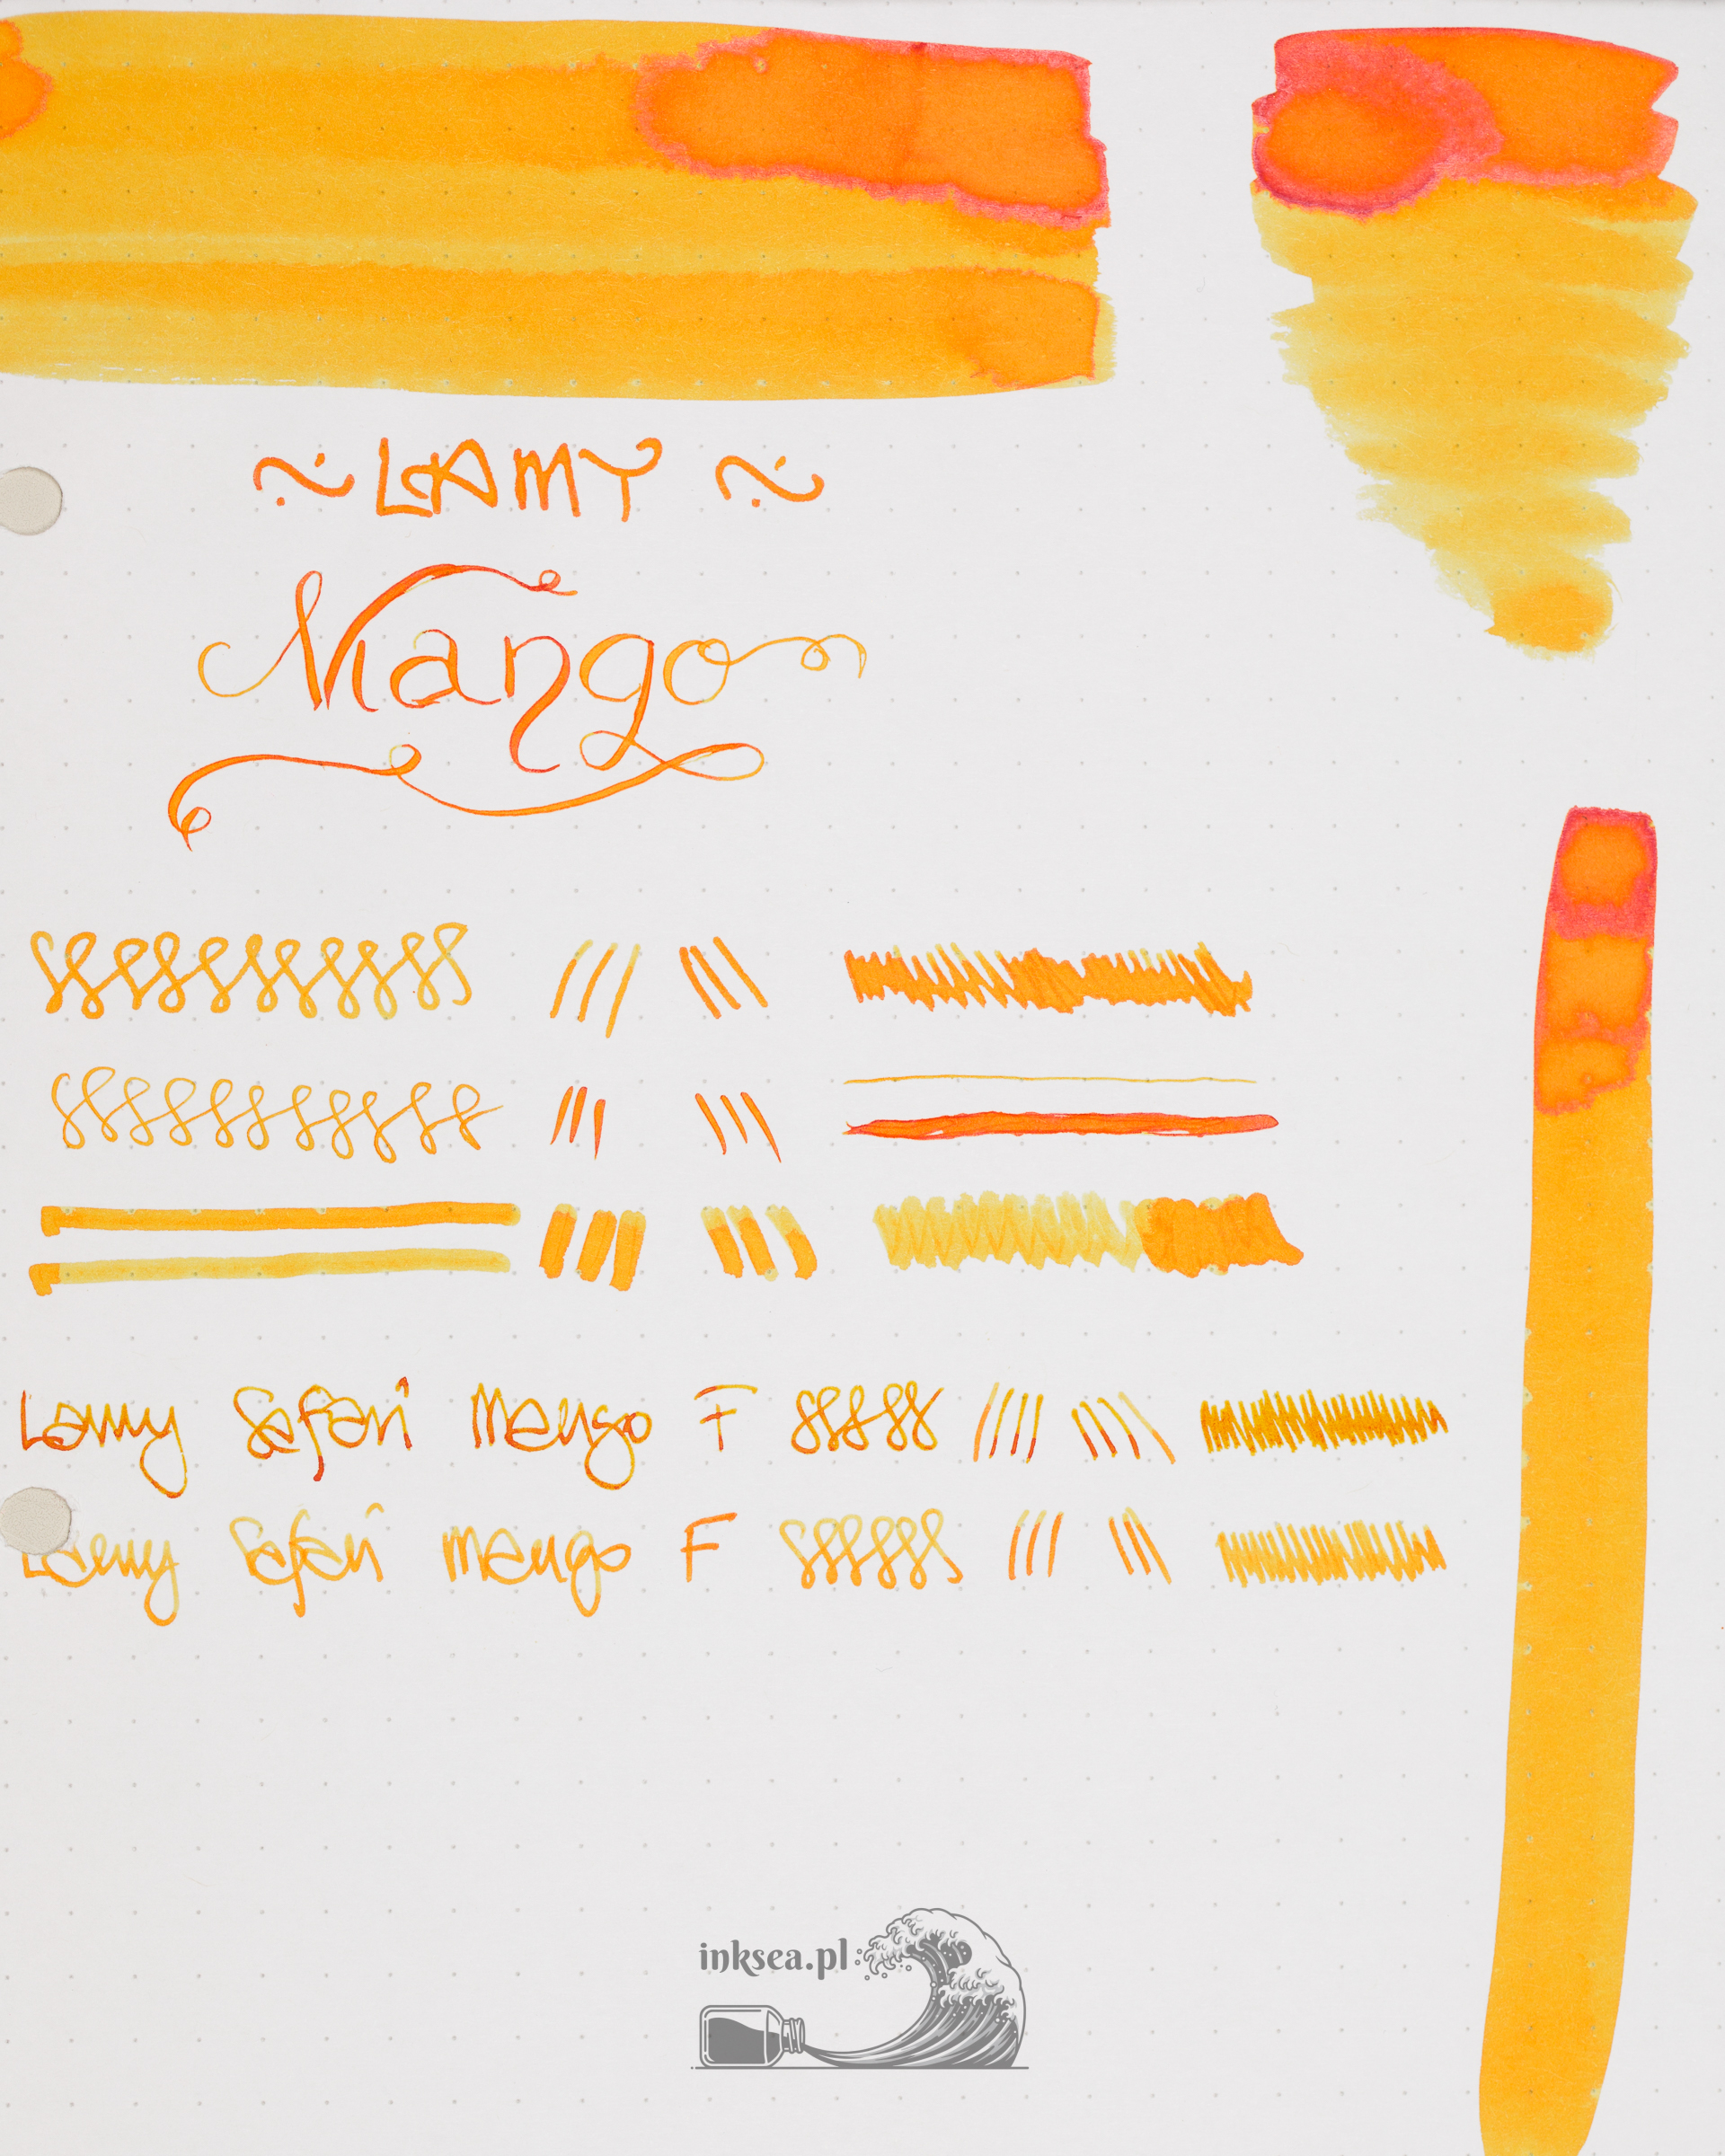 ~ LAMY ~
Mango
Lamy Safari Mango F
Lamy Safari Mango F
inksea.pl